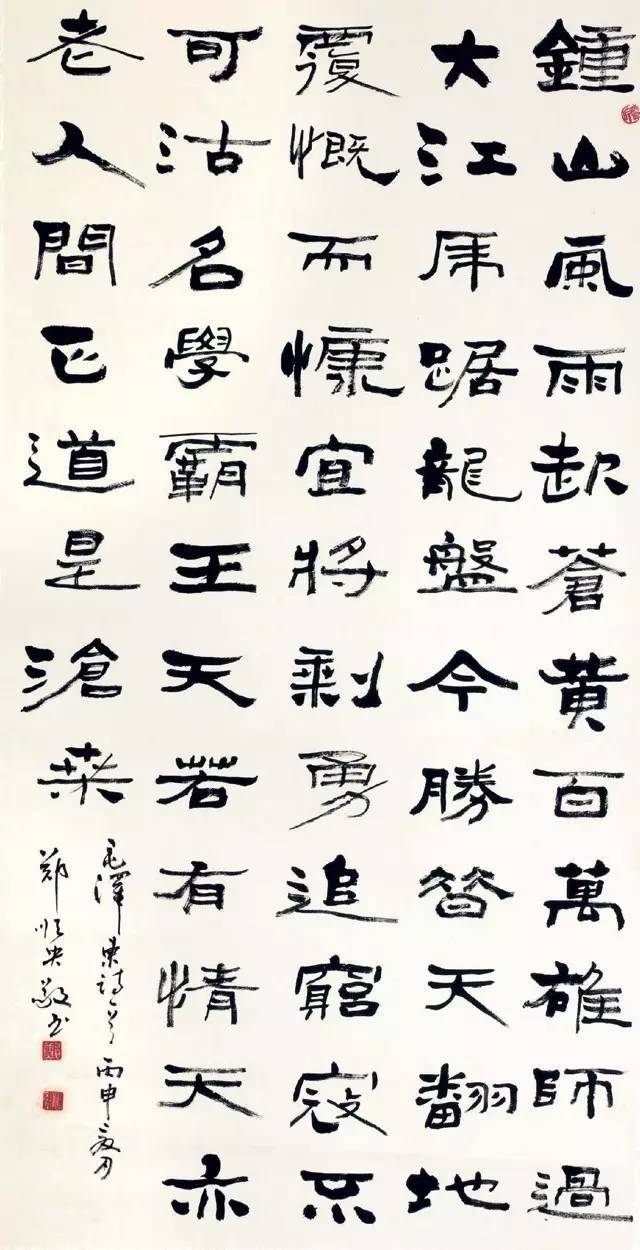 鍾山風雨起蒼黄百萬雄師過
大江虎踞龍盤今勝昔天翻地
覆慨而慷宜將剩勇追窮寇不
可沽名學霸王天若有情天亦
老人間正道是滄桑
毛澤東詩 丙申
郑 央敬书